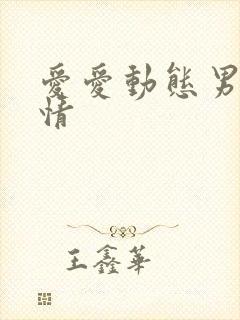 愛愛動態男
情
王鑫華